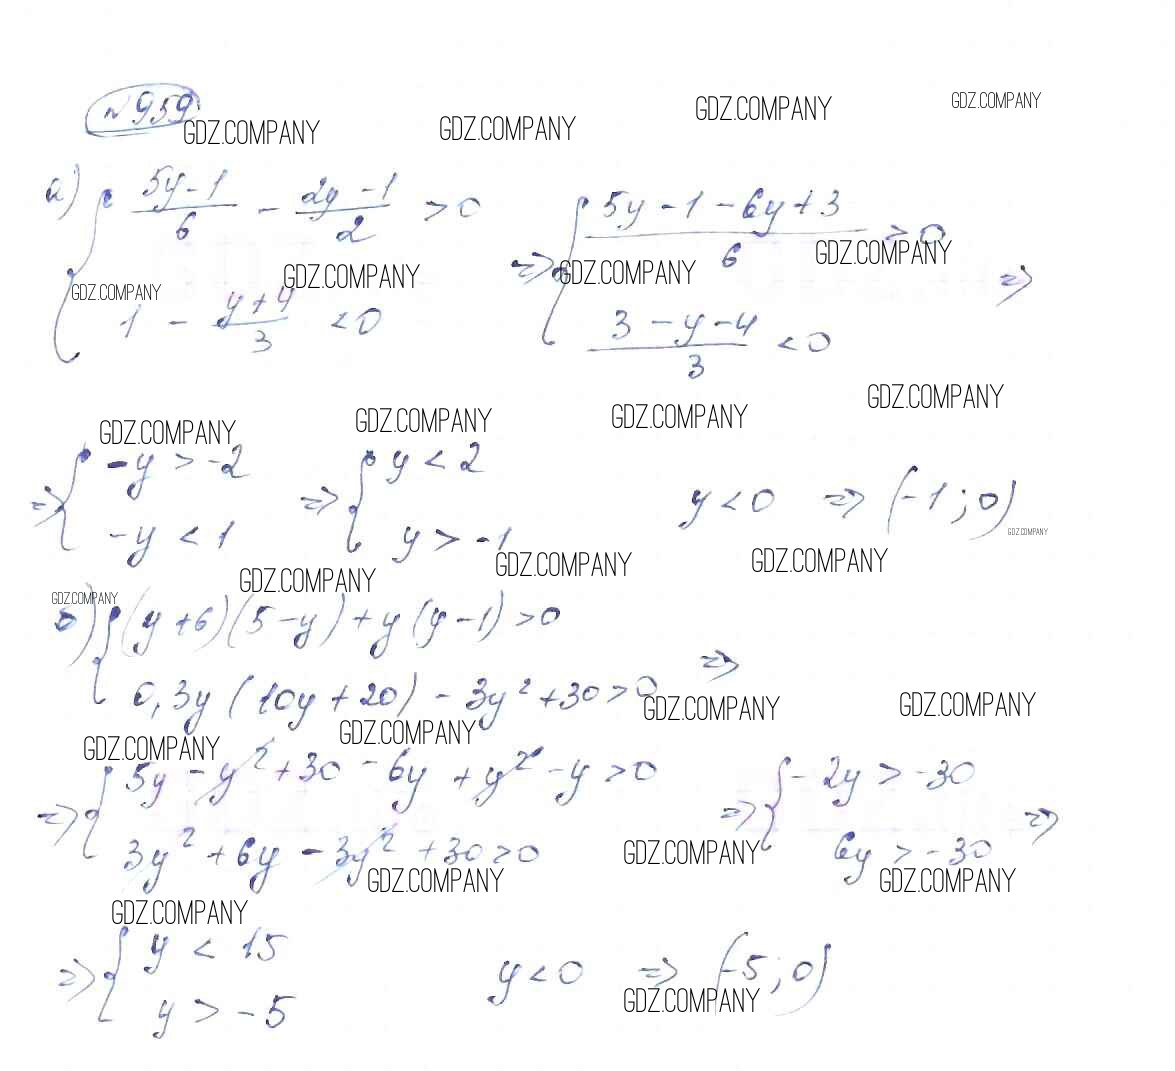 №959
GDZ.COMPANY GDZ.COMPANY GDZ.COMPANY GDZ.COMPANY
а) { (5y-1)/6 - (2y-1)/2 > 0 => { (5y-1-6y+3)/6 > 0
GDZ.COMPANY GDZ.COMPANY GDZ.COMPANY GDZ.COMPANY
1 - (y+4)/3 < 0 (3-y-4)/3 < 0 =>
GDZ.COMPANY GDZ.COMPANY GDZ.COMPANY GDZ.COMPANY
=> { -y > -2 => { y < 2
-y < 1 y > -1 y < 0 => (-1; 0)
GDZ.COMPANY
GDZ.COMPANY GDZ.COMPANY GDZ.COMPANY
GDZ.COMPANY
б) { (y+6)(5-y)+y(y-1)>0
0,3y(10y+20)-3y²+30>0 =>
GDZ.COMPANY GDZ.COMPANY GDZ.COMPANY GDZ.COMPANY
=> { 5y-y²+30-6y+y²-y>0 => { -2y > -30
3y²+6y-3y²+30>0 6y > -30 =>
GDZ.COMPANY GDZ.COMPANY GDZ.COMPANY
GDZ.COMPANY
=> { y < 15
y > -5 y < 0 => (-5; 0)
GDZ.COMPANY